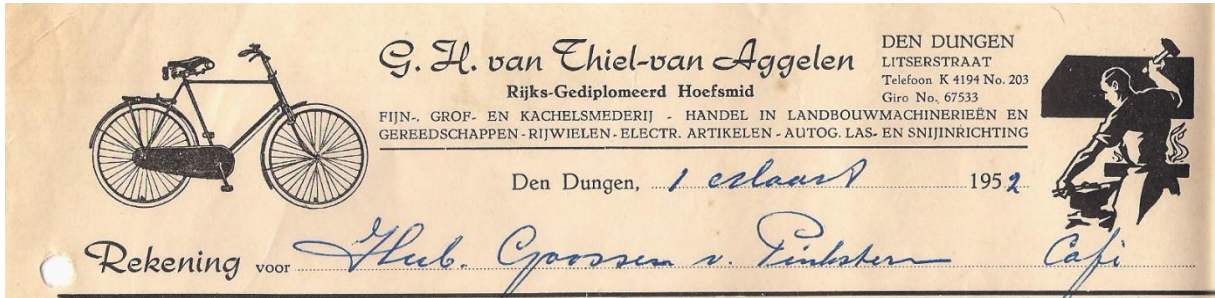 G. H. van Thiel-van Aggelen
Rijks-Gediplomeerd Hoefsmid
DEN DUNGEN
LITSERSTRAAT
Telefoon K 4194 No. 203
Giro No. 67533
FIJN-, GROF- EN KACHELSMEDERIJ - HANDEL IN LANDBOUWMACHINERIEËN EN
GEREEDSCHAPPEN - RIJWIELEN - ELECTR. ARTIKELEN - AUTOG. LAS- EN SNIJINRICHTING
Den Dungen, 1 Maart 1952
Rekening voor Hub. Goossen v. Pinkstern Café